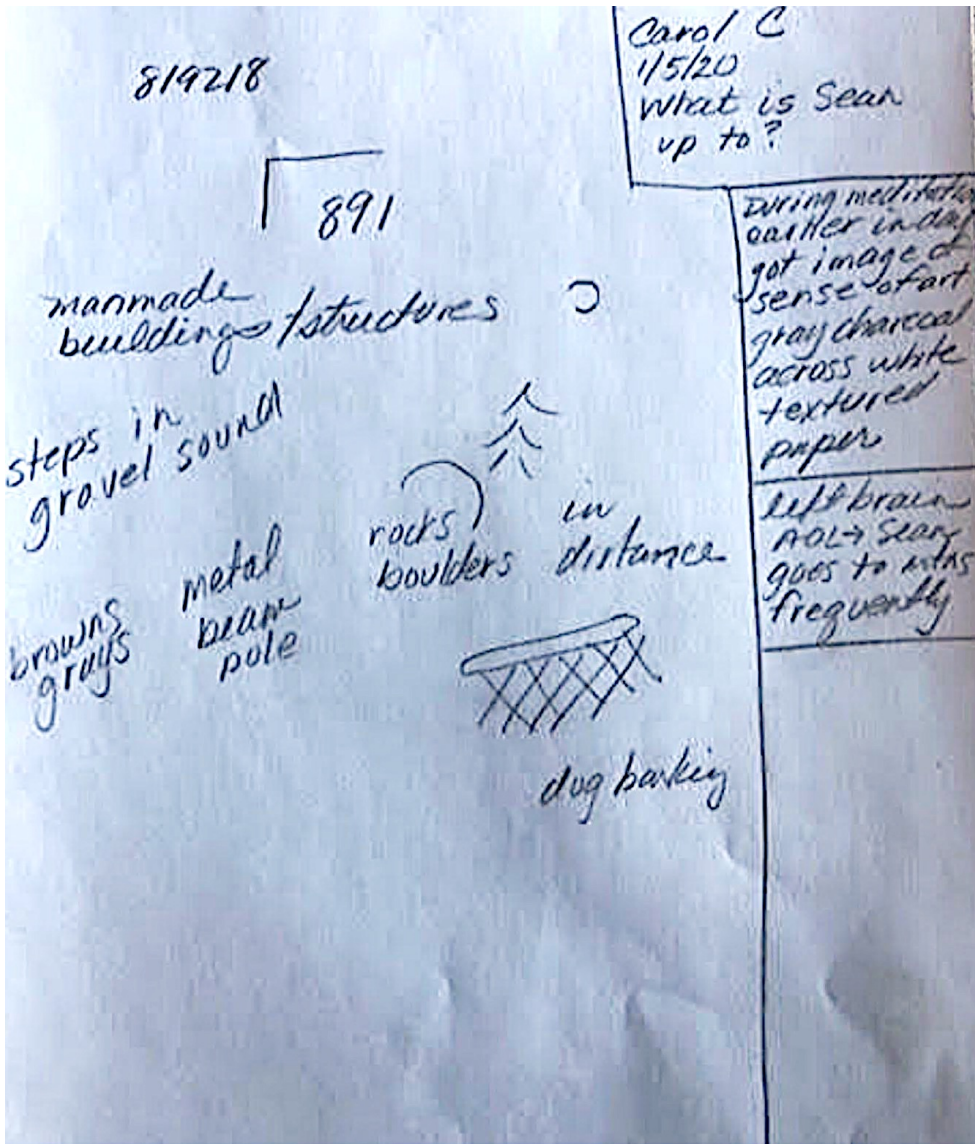 819218
891
manmade
buildings/structures
steps in
gravel sound
browns
grays
metal
beam
pole
rocks
boulders
in
distance
dog barking
Carol C
1/5/20
What is Sean
up to?
During meditation
earlier in day
got image &
sense of art
gray charcoal
across white
textured
paper
left brain
AOL→ Sean
goes to mtns
frequently